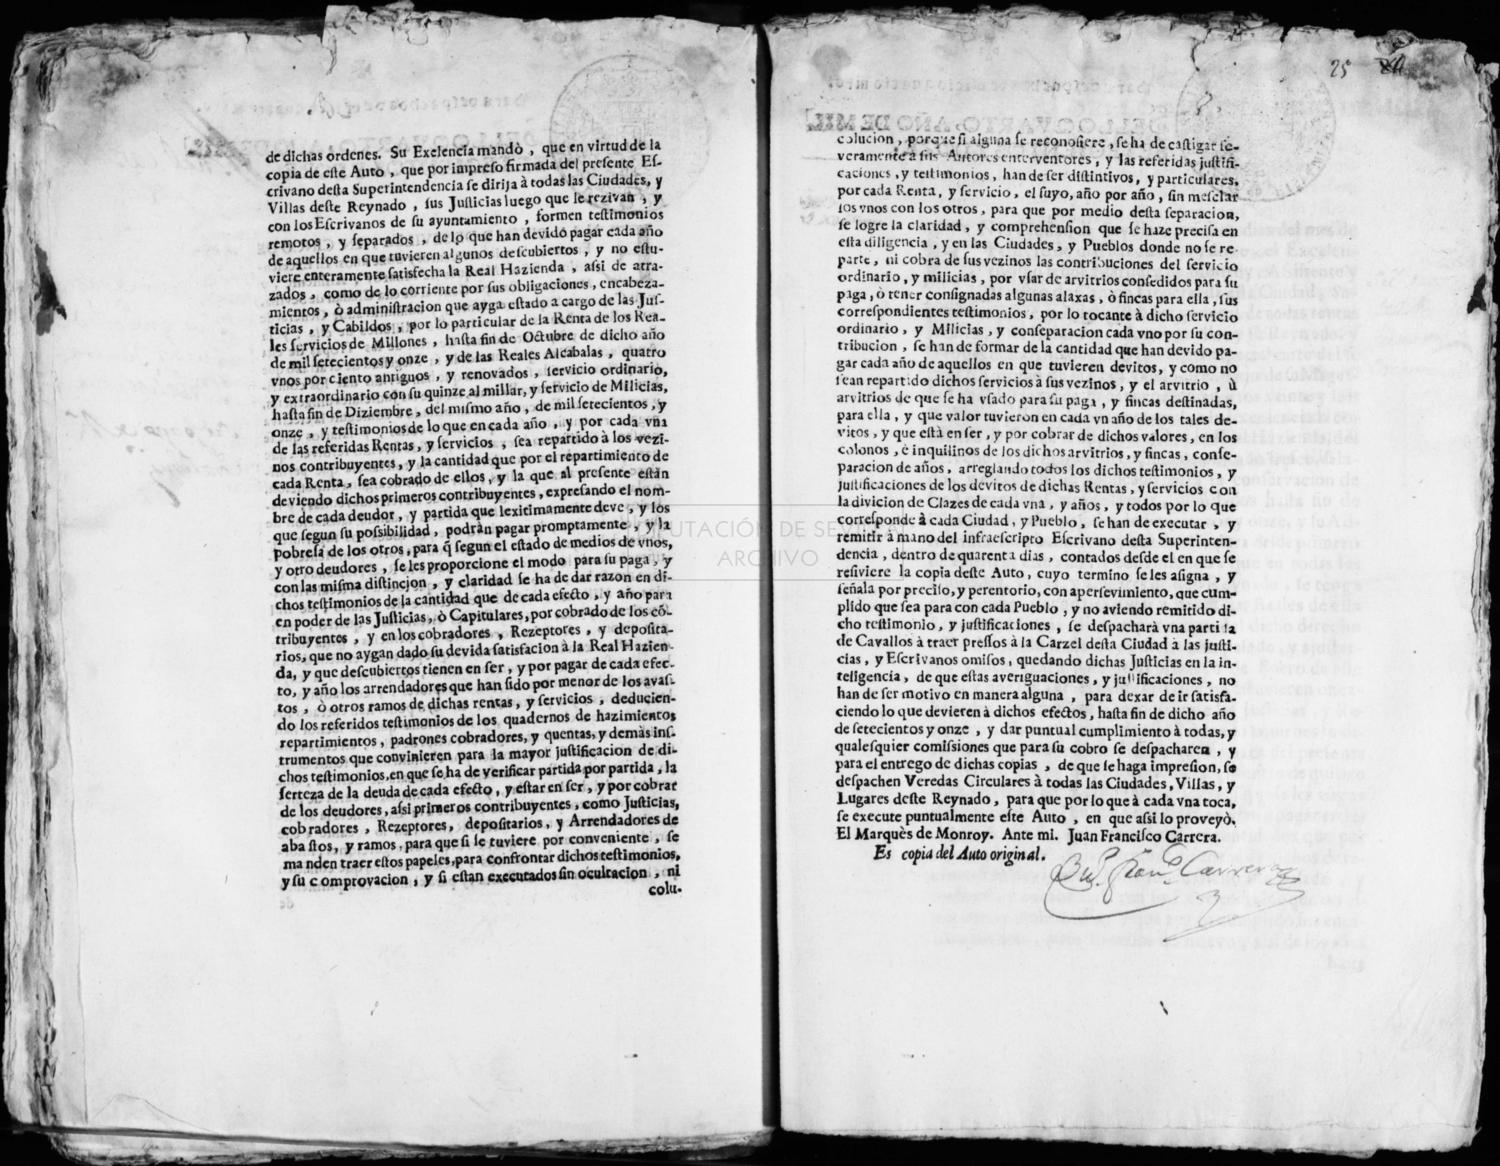 de dichas ordenes. Su Exelencia mandò, que en virtud de la
copia de este Auto, que por impreso firmada del presente Es-
crivano desta Superintendencia se dirija à todas las Ciudades, y
Villas deste Reynado, sus Justicias luego que le rezivan, y
con los Escrivanos de su ayuntamiento, formen testimonios
remotos, y separados, de lo que han devido pagar cada año
de aquellos en que tuvieren algunos descubiertos, y no estu-
viere enteramente satisfecha la Real Hazienda, assi de atra-
zados, como de lo corriente por sus obligaciones, encabeza-
mientos, ò administracion que ayga estado a cargo de las Jus-
ticias, y Cabildos, por lo particular de la Renta de los Rea-
les servicios de Millones, hasta fin de Octubre de dicho año
de mil setecientos y onze, y de las Reales Alcabalas, quatro
vnos por ciento antiguos, y renovados, servicio ordinario,
y extraordinario con su quinze al millar, y servicio de Milicias,
hasta fin de Diziembre, del mismo año, de mil setecientos, y
onze, y testimonios de lo que en cada año, y por cada vna
de las referidas Rentas, y servicios, sea repartido à los vezi-
nos contribuyentes, y la cantidad que por el repartimiento de
cada Renta, sea cobrado de ellos, y la que al presente están
deviendo dichos primeros contribuyentes, expresando el nom-
bre de cada deudor, y partida que lexitimamente deve, y los
que segun su possibilidad, podràn pagar promptamente, y la
pobresa de los otros, para q̃ segun el estado de medios de vnos,
y otro deudores, se les proporcione el modo para su paga, y
con las misma distincion, y claridad se ha de dar razon en di-
chos testimonios de la cantidad que de cada efecto, y año para
en poder de las Justicias, ò Capitulares, por cobrado de los cõ-
tribuyentes, y en los cobradores, Rezeptores, y deposita-
rios, que no aygan dado su devida satisfacion à la Real Hazien-
da, y que descubiertos tienen en ser, y por pagar de cada efec-
to, y año los arrendadores que han sido por menor de los avas-
tos, ò otros ramos de dichas rentas, y servicios, deducien-
do los referidos testimonios de los quadernos de hazimientos
repartimientos, padrones cobradores, y quentas, y demàs ins-
trumentos que convinieren para la mayor justificacion de di-
chos testimonios, en que se ha de verificar partida por partida, la
serteza de la deuda de cada efecto, y estar en ser, y por cobrar
de los deudores, assi primeros contribuyentes, como Justicias,
cobradores, Rezeptores, depositarios, y Arrendadores de
abastos, y ramos, para que si le tuviere por conveniente, se
manden traer estos papeles, para confrontar dichos testimonios,
y su comprovacion, y si estan executados sin ocultacion, ni
colu-
25
colucion, porque si alguna se reconosiere, se ha de castigar se-
veramente à sus Autores enterventores, y las referidas justifi-
caciones, y testimonios, han de ser distintivos, y particulares,
por cada Renta, y servicio, el suyo, año por año, sin mesclar
los vnos con los otros, para que por medio desta separacion,
se logre la claridad, y comprehension que se haze precisa en
esta diligencia, y en las Ciudades, y Pueblos donde no se re-
parte, ni cobra de sus vezinos las contribuciones del servicio
ordinario, y milicias, por vsar de arvitrios consedidos para su
paga, ò tener consignadas algunas alaxas, ò fincas para ella, sus
correspondientes testimonios, por lo tocante à dicho servicio
ordinario, y Milicias, y conseparacion cada vno por su con-
tribucion, se han de formar de la cantidad que han devido pa-
gar cada año de aquellos en que tuvieren devitos, y como no
sean repartido dichos servicios à sus vezinos, y el arvitrio, ù
arvitrios de que se ha vsado para su paga, y fincas destinadas,
para ella, y que valor tuvieron en cada vn año de los tales de-
vitos, y que està en ser, y por cobrar de dichos valores, en los
colonos, è inquilinos de los dichos arvitrios, y fincas, conse-
paracion de años, arreglando todos los dichos testimonios, y
justificaciones de los devitos de dichas Rentas, y servicios con
la divicion de Clazes de cada vna, y años, y todos por lo que
corresponde à cada Ciudad, y Pueblo, se han de executar, y
remitir à mano del infraescripto Escrivano desta Superinten-
dencia, dentro de quarenta dias, contados desde el en que se
resiviere la copia deste Auto, cuyo termino se les asigna, y
señala por preciso, y perentorio, con apersevimiento, que cum-
plido que sea para con cada Pueblo, y no aviendo remitido di-
cho testimonio, y justificaciones, se despachará vna partida
de Cavallos à traer pressos à la Carzel desta Ciudad à las justi-
cias, y Escrivanos omisos, quedando dichas Justicias en la in-
teligencia, de que estas averiguaciones, y justificaciones, no
han de ser motivo en manera alguna, para dexar de ir satisfa-
ciendo lo que devieren à dichos efectos, hasta fin de dicho año
de setecientos y onze, y dar puntual cumplimiento à todas, y
qualesquier comissiones que para su cobro se despacharen, y
para el entrego de dichas copias, de que se haga impresion, se
despachen Veredas Circulares à todas las Ciudades, Villas, y
Lugares deste Reynado, para que por lo que à cada vna toca,
se execute puntualmente este Auto, en que assi lo proveyò.
El Marquès de Monroy. Ante mi. Juan Francisco Carrera.
Es copia del Auto original.
Carrera
DIPUTACIÓN DE SEVILLA
ARCHIVO